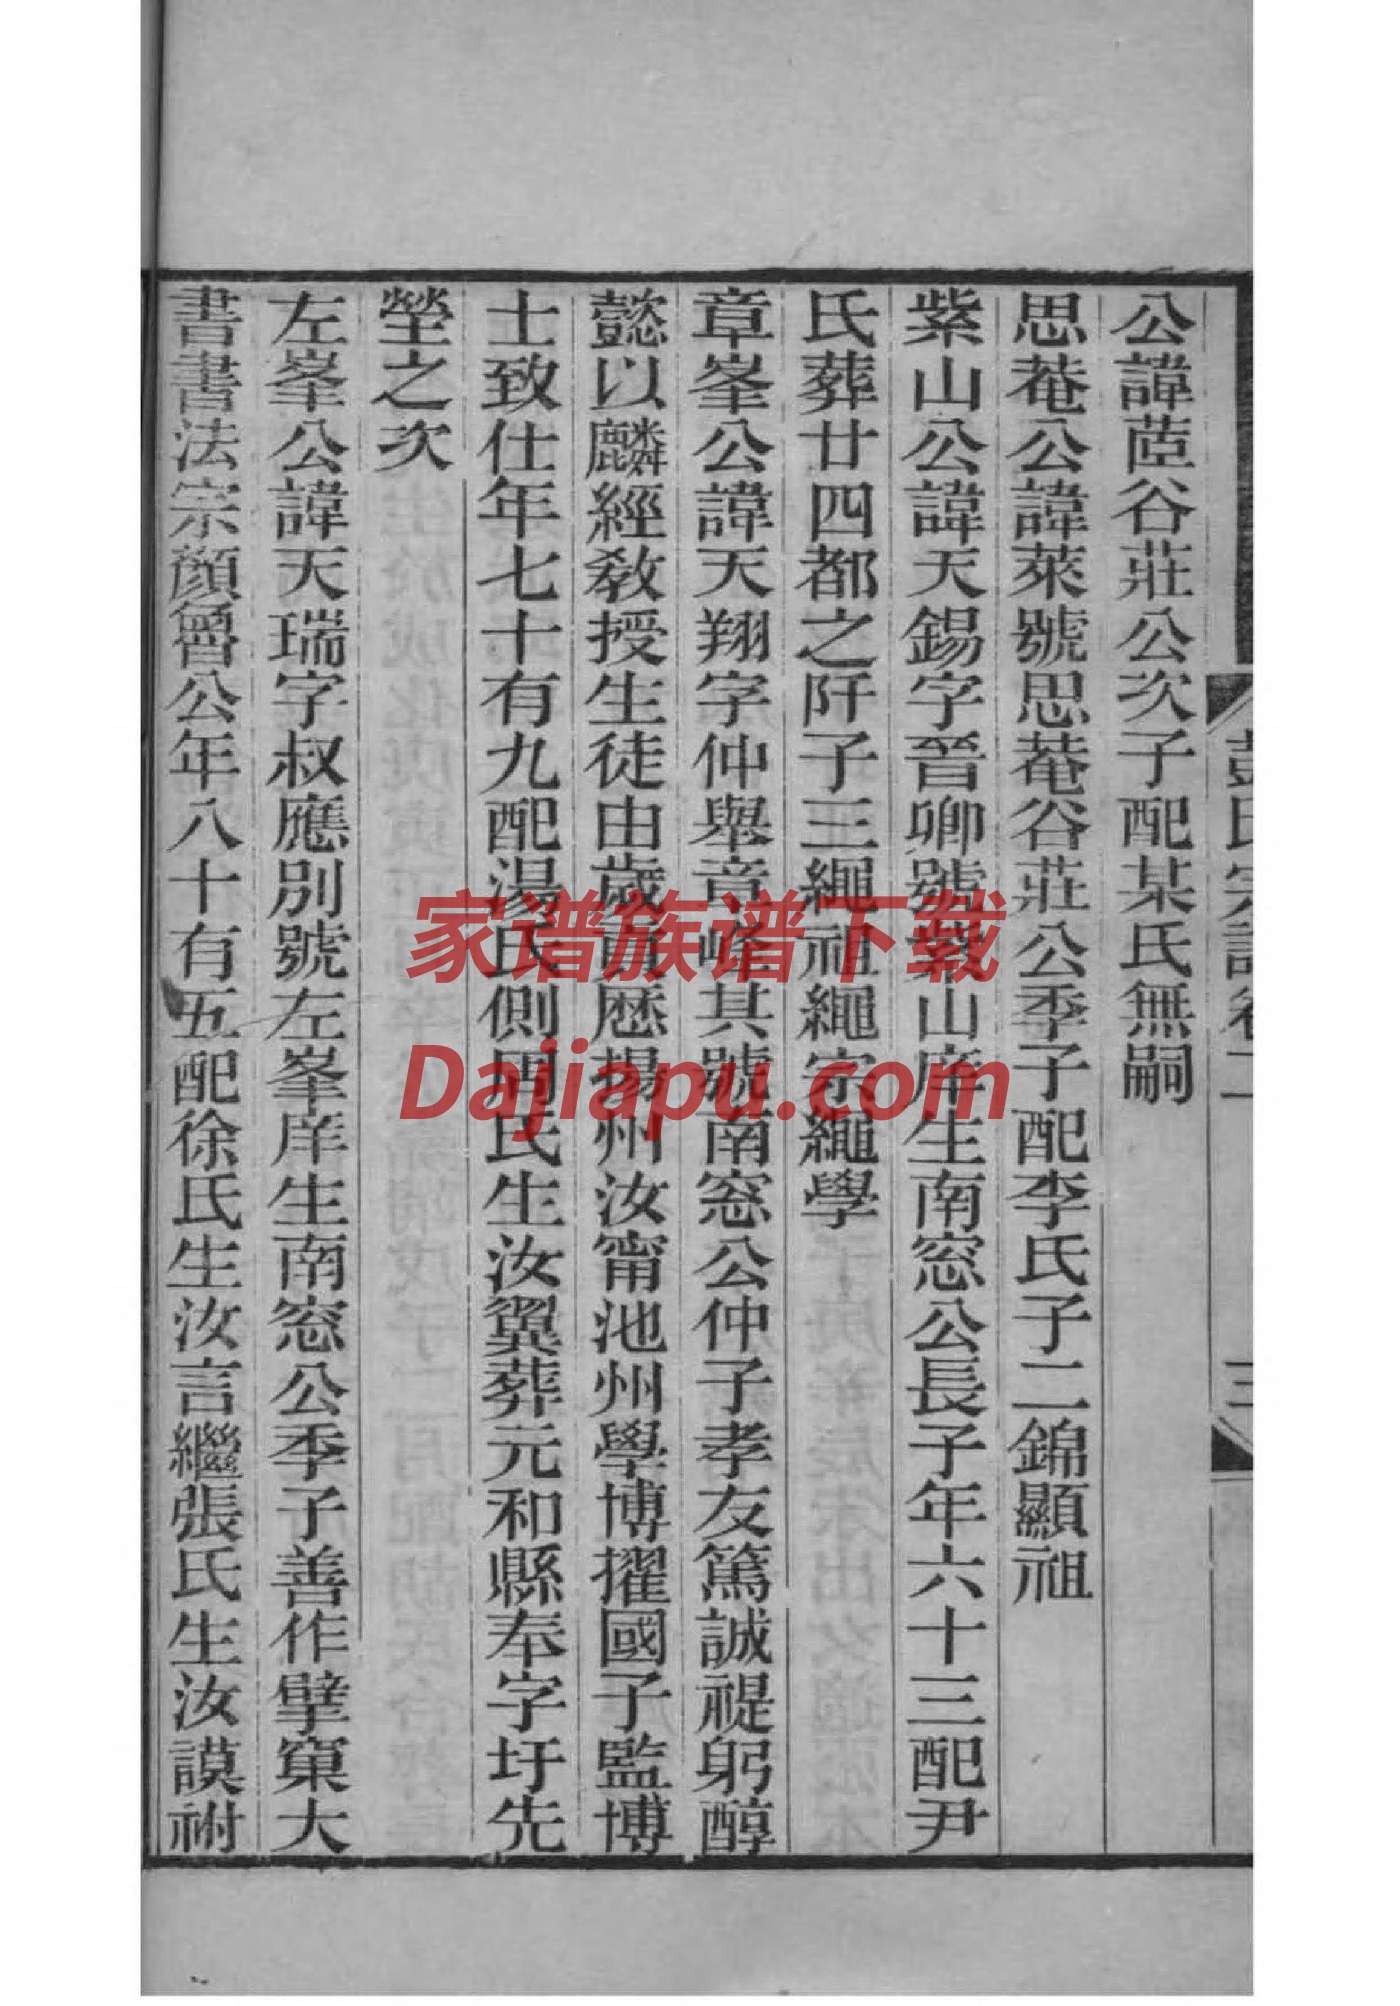 彭氏宗譜卷二
三
公諱茝谷莊公次子配某氏無嗣
思菴公諱萊號思菴谷莊公季子配李氏子二錦顯祖
紫山公諱天錫字晉卿號紫山庠生南窓公長子年六十三配尹
氏葬廿四都之阡子三繩祖繩宗繩學
章峯公諱天翔字仲舉章峰其號南窓公仲子孝友篤誠禔躬醇
懿以麟經教授生徒由歲貢歷揚州汝甯池州學博擢國子監博
士致仕年七十有九配湯氏側周氏生汝翼葬元和縣奉字圩先
塋之次
左峯公諱天瑞字叔應別號左峯庠生南窓公季子善作擘窠大
書書法宗顏魯公年八十有五配徐氏生汝言繼張氏生汝謨祔
家谱族谱下载
Dajiapu.com